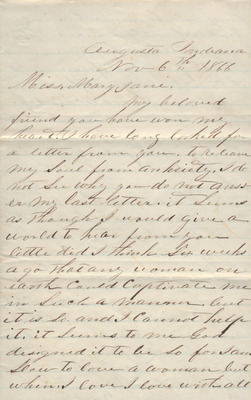 Augusta Indiana
Nov 6th 1866
Miss Mary Jane.
My beloved
friend you have won my
heart I have long looked for
a letter from you to relieve
my Soul from anksiety, I do
not See why you do not answ
er my last letter. it Seems
as though I would give a
world to hear from you
little did I think Six weeks
a go that any woman on
earth Could Captivate me
in Such a manner. but
it is So and I Cannot help
it. it Seems to me God
designed it to be So for I am
Slow to love a woman but
when I love I love with all